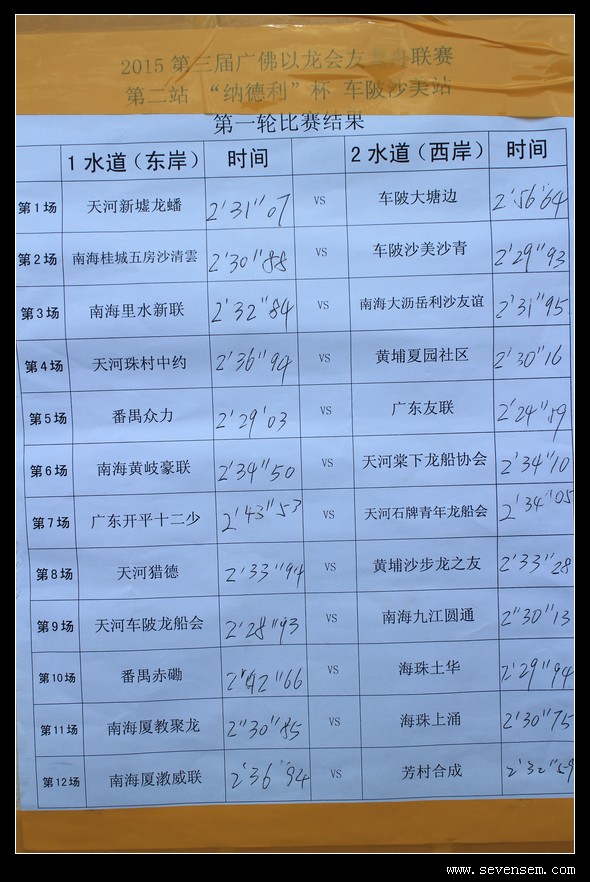 2015 第三届广佛以龙会友 舟联赛
第二站 “纳德利”杯 车陂沙美站
第一轮比赛结果
1水道（东岸） 时间 2水道（西岸） 时间
第1场 天河新墟龙蟠 2'31"07 VS 车陂大塘边 2'56"64
第2场 南海桂城五房沙清雲 2'30"88 VS 车陂沙美沙青 2'29"93
第3场 南海里水新联 2'32"84 VS 南海大沥岳利沙友谊 2'31"95
第4场 天河珠村中约 2'36"94 VS 黄埔夏园社区 2'30"16
第5场 番禺众力 2'29'03 VS 广东友联 2'24"59
第6场 南海黄岐豪联 2'34"50 VS 天河棠下龙船协会 2'34"10
第7场 广东开平十二少 2'43"53 VS 天河石牌青年龙船会 2'34"05
第8场 天河猎德 2'33"94 VS 黄埔沙步龙之友 2'33"28
第9场 天河车陂龙船会 2'28"93 VS 南海九江圆通 2"30"13
第10场 番禺赤磡 2'42"66 VS 海珠土华 2'29"94
第11场 南海厦教聚龙 2"30"85 VS 海珠上涌 2'30"75
第12场 南海厦漖威联 2'36"94 VS 芳村合成 2'32"59
www.sevensem.com